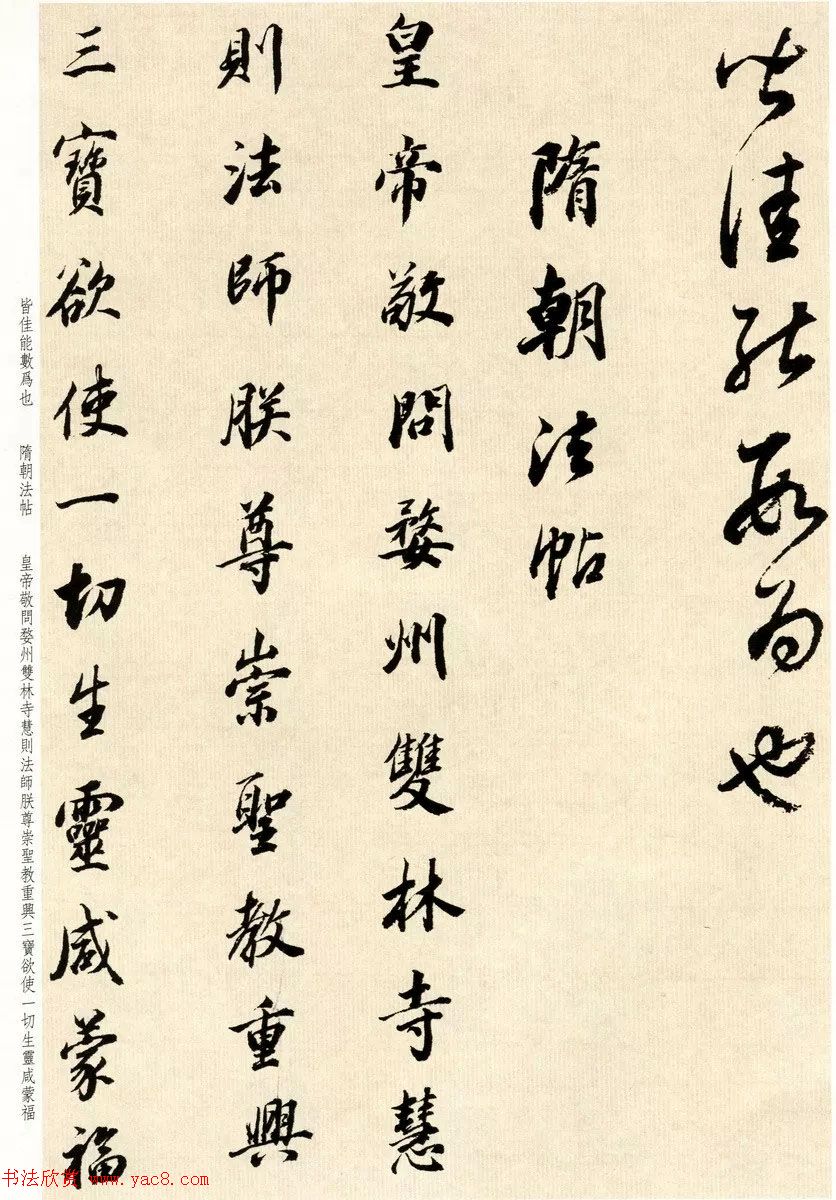 皆佳能數為也
隋朝法帖
皇帝敬問婺州雙林寺慧
則法師朕尊崇聖教重興
三寶欲使一切生靈咸蒙福
皆佳能數爲也 隋朝法帖 皇帝敬問婺州雙林寺慧則法師朕尊崇聖教重興三寶欲使一切生靈咸蒙福
书法欣赏 www.yac8.com